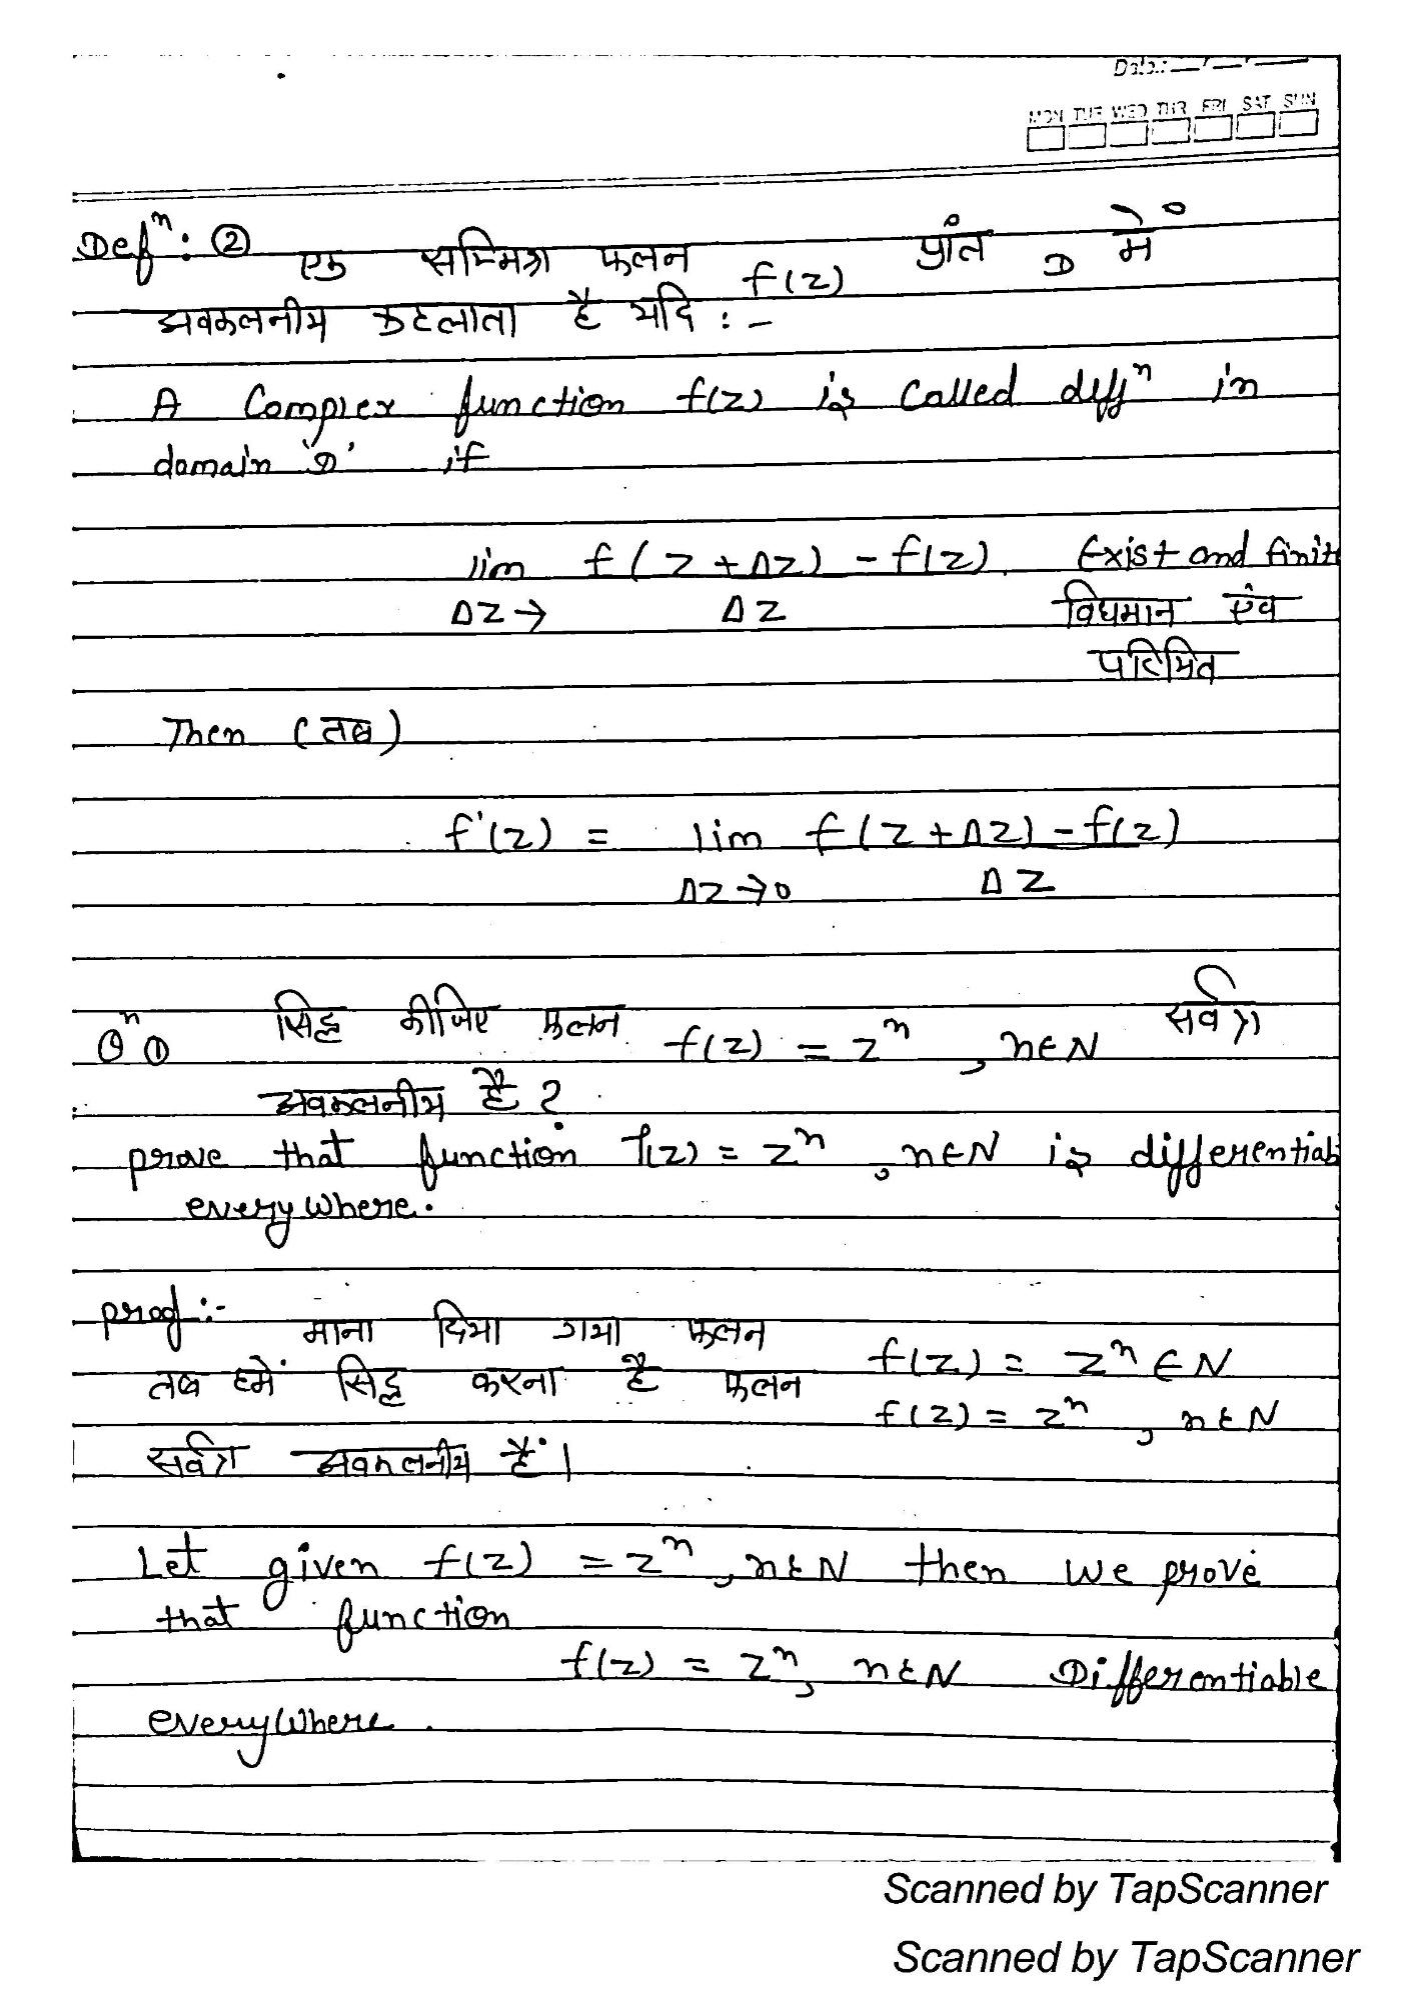 Date: __/__/__
MON TUE WED THR FRI SAT SUN
Defⁿ: ② एक सम्मिश्र फलन f(z) प्रांत D में
अवकलनीय कहलाता है यदि :-
A Complex function f(z) is called diffⁿ in
domain 'D' if
lim f(z+Δz) - f(z) Exist and finite
Δz→ Δz विधमान एंव
परिमित
Then (तब)
f'(z) = lim f(z+Δz) - f(z)
Δz→0 Δz
Qⁿ ① सिद्ध कीजिए फलन f(z) = zⁿ, n∈N सर्वत्र
अवकलनीय है ?
prove that function f(z) = zⁿ, n∈N is differentiab
everywhere.
proof:- माना दिया गया फलन f(z) = zⁿ ∈ N
तब हमें सिद्ध करना है फलन f(z) = zⁿ, n∈N
सर्वत्र अवकलनीय हैं।
Let given f(z) = zⁿ, n∈N then we prove
that function
f(z) = zⁿ, n∈N Differentiable
everywhere.
Scanned by TapScanner
Scanned by TapScanner